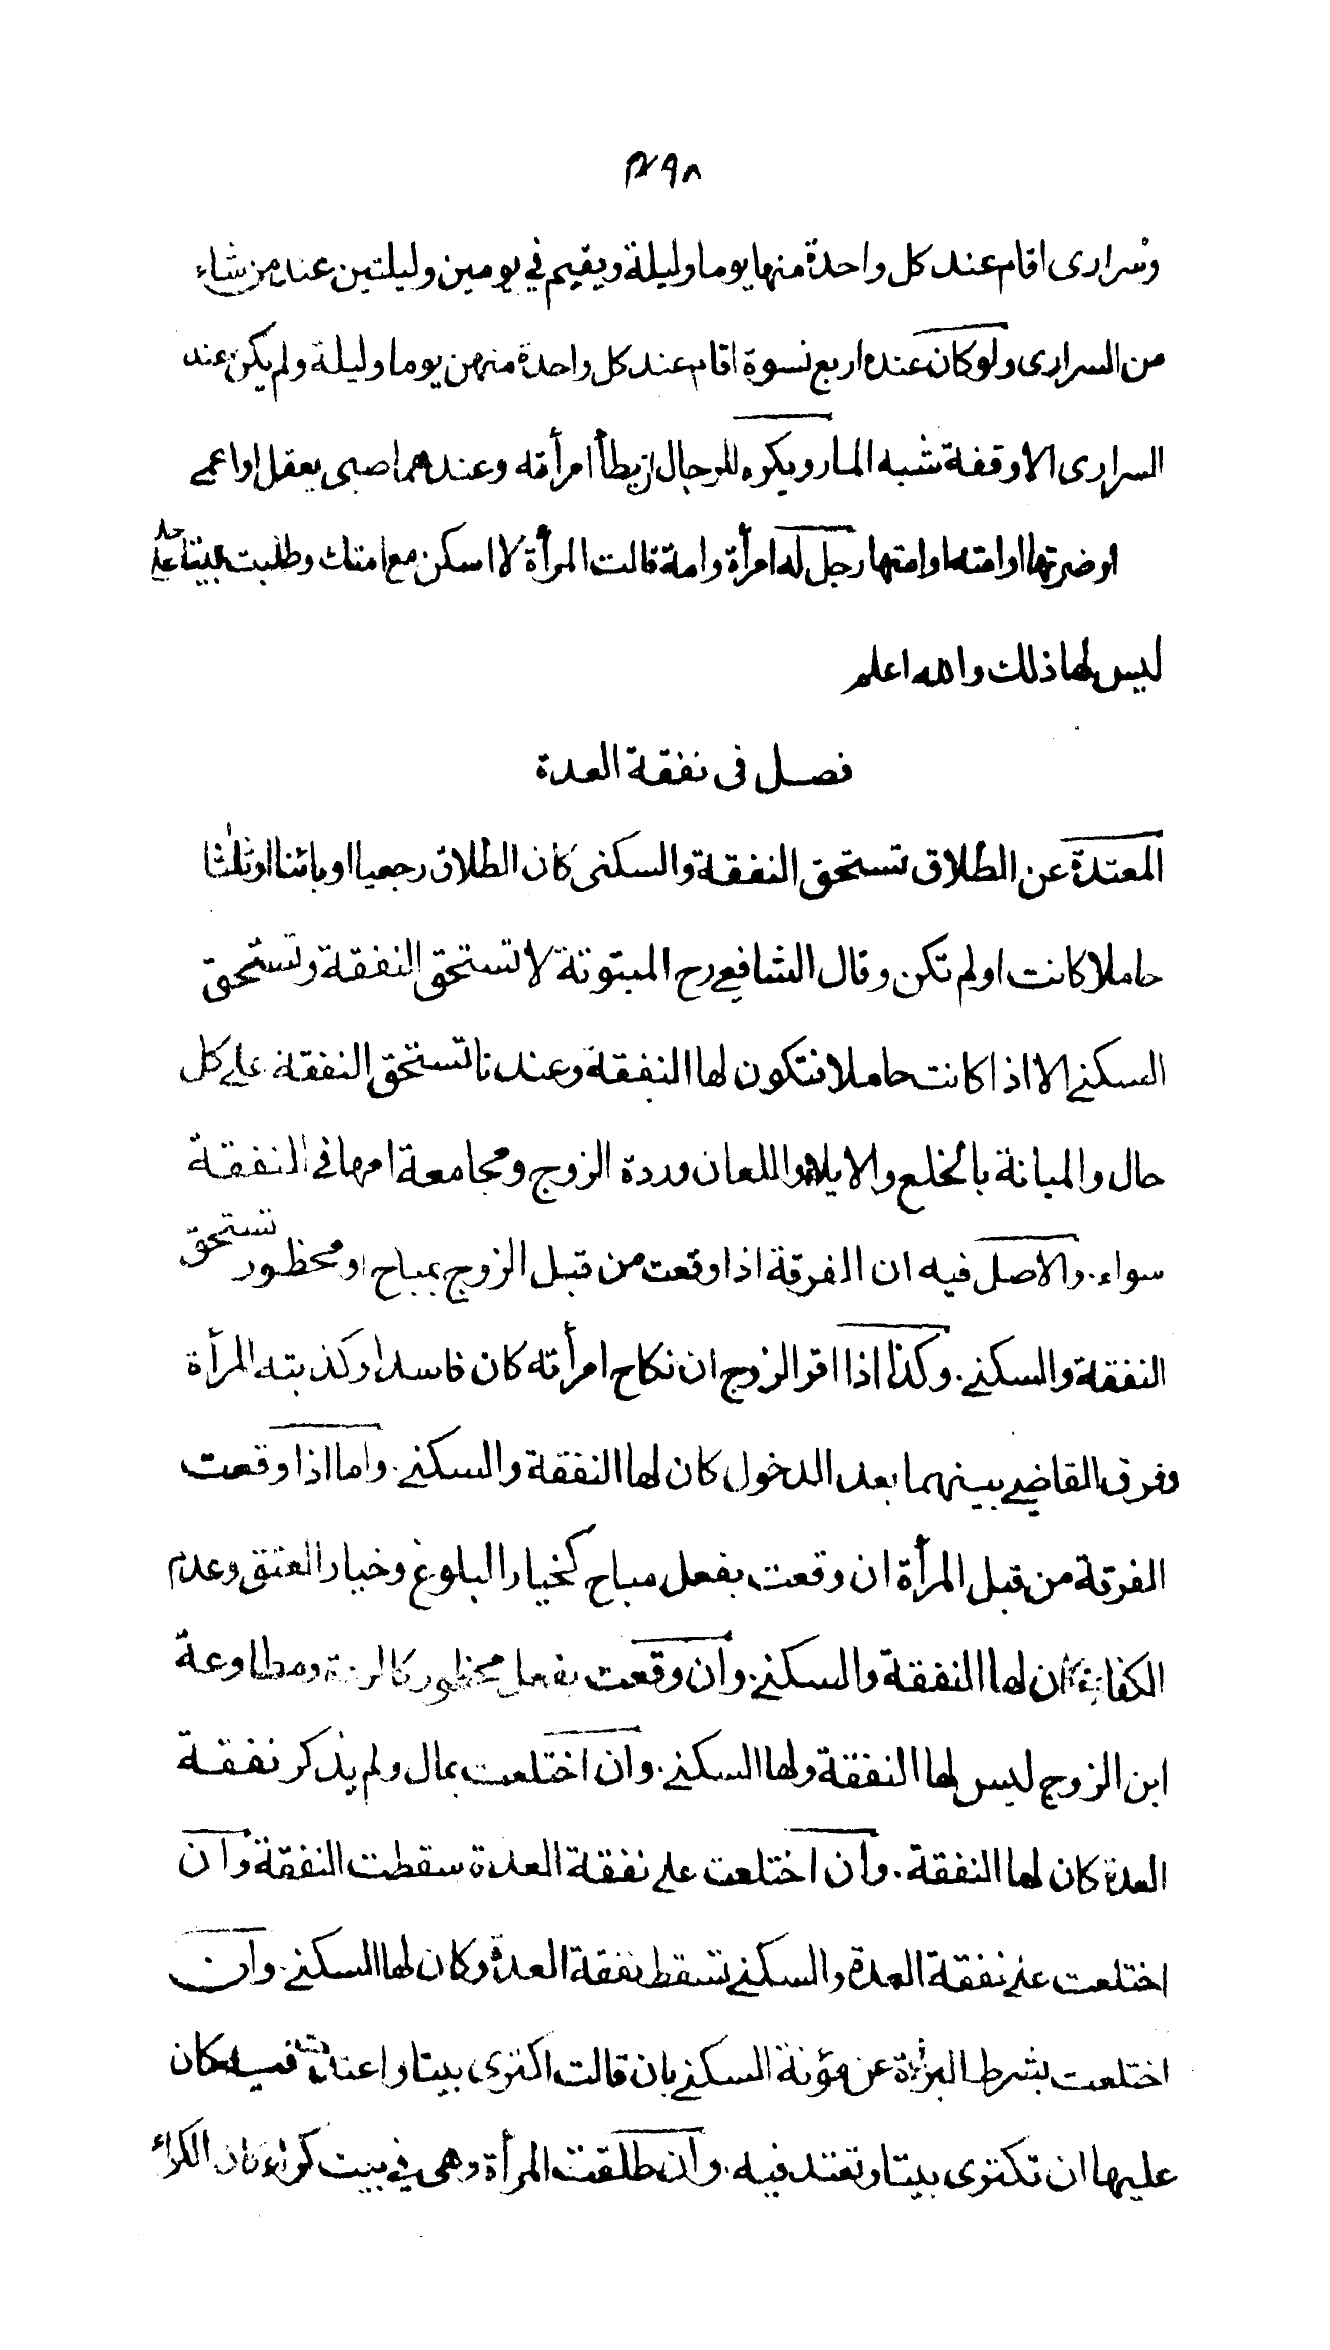 ٣٩٨
وسرارى اقام عند كل واحدة منها يوما وليلة ويقيم في يومين وليلتين عند من شاء
من السرارى ولو كان عنده اربع نسوة اقام عند كل واحدة منهن يوما وليلة ولم يكن عند
السرارى الا وقفة شبه المار ويكره للرجال ان يطأ امرأته وعندهما صبى يعقل او اعمى
او ضرتها او امته او امتها رجل له امرأة وامة قالت المرأة لا اسكن مع امتك وطلبت بيتا على حد
ليس لها ذلك والله اعلم
فصل فى نفقة العدة
المعتدة عن الطلاق تستحق النفقة والسكنى كان الطلاق رجعيا او بائنا او ثلثا
حاملا كانت او لم تكن وقال الشافعي رح المبتوتة لا تستحق النفقة وتستحق
السكنى الا اذا كانت حاملا فتكون لها النفقة وعندنا تستحق النفقة على كل
حال والمبانة بالخلع والايلاء واللعان وردة الزوج ومجامعة امها فى النفقة
سواء. والاصل فيه ان الفرقة اذا وقعت من قبل الزوج بمباح او محظور تستحق
النفقة والسكنى. وكذا اذا اقر الزوج ان نكاح امرأته كان فاسدا وكذبته المرأة
وفرق القاضي بينهما بعد الدخول كان لها النفقة والسكنى. واما اذا وقعت
الفرقة من قبل المرأة ان وقعت بفعل مباح كخيار البلوغ وخيار العتق وعدم
الكفاءة كان لها النفقة والسكنى. وان وقعت بفعل محظور كالردة ومطاوعة
ابن الزوج ليس لها النفقة ولها السكنى. وان اختلعت بمال ولم يذكر نفقة
العدة كان لها النفقة. وان اختلعت على نفقة العدة سقطت النفقة وان
اختلعت على نفقة العدة والسكنى تسقط نفقة العدة وكان لها السكنى. وان
اختلعت بشرط البراءة عن مؤنة السكنى بان قالت اكترى بيتا واعتد فيه كان
عليها ان تكترى بيتا وتعتد فيه. وان طلقت المرأة وهى في بيت كراء كان الكراء